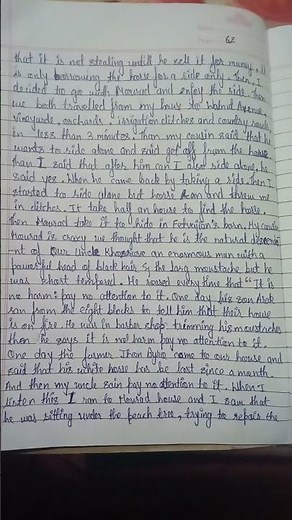 62
that it is not stealing untill he sell it for money. It
is only borrowing the horse for a ride only. Then I
decided to go with Mourad and enjoy the ride. Then
we both travelled from my house to Walnut Avenue
vineyards, orchards, irrigation ditches and country roads
in less than 3 minutes. Than my cousin said that he
wants to ride alone and said get off from the horse
than I said that after him can I also ride alone, he
said yes. When he came back by taking a ride. Then I
started to ride alone but horse ran and threw me
in ditches. It take half an hour to find the horse.
then Mourad take it to hide in Fetvajian's barn. My cousin
Mourad is crazy we thought that he is the natural descend
-nt of our Uncle Khosrove an enormous man with a
powerful head of black hair & long moustache but he
was short tempered. He roared every time that "It is
no harm; pay no attention to it. One day his son Arak
ran from the eight blocks to tell him that their house
is on fire. He was in barber shop trimming his moustaches
then he says it is not harm pay no attention to it.
One day the farmer Jhon Byro came to our house and
said that his white horse has be lost since a month
And then my uncle sain pay no attention to it. When I
listen this I ran to Mourad house and I saw that
he was sitting under the peach tree, trying to repair the